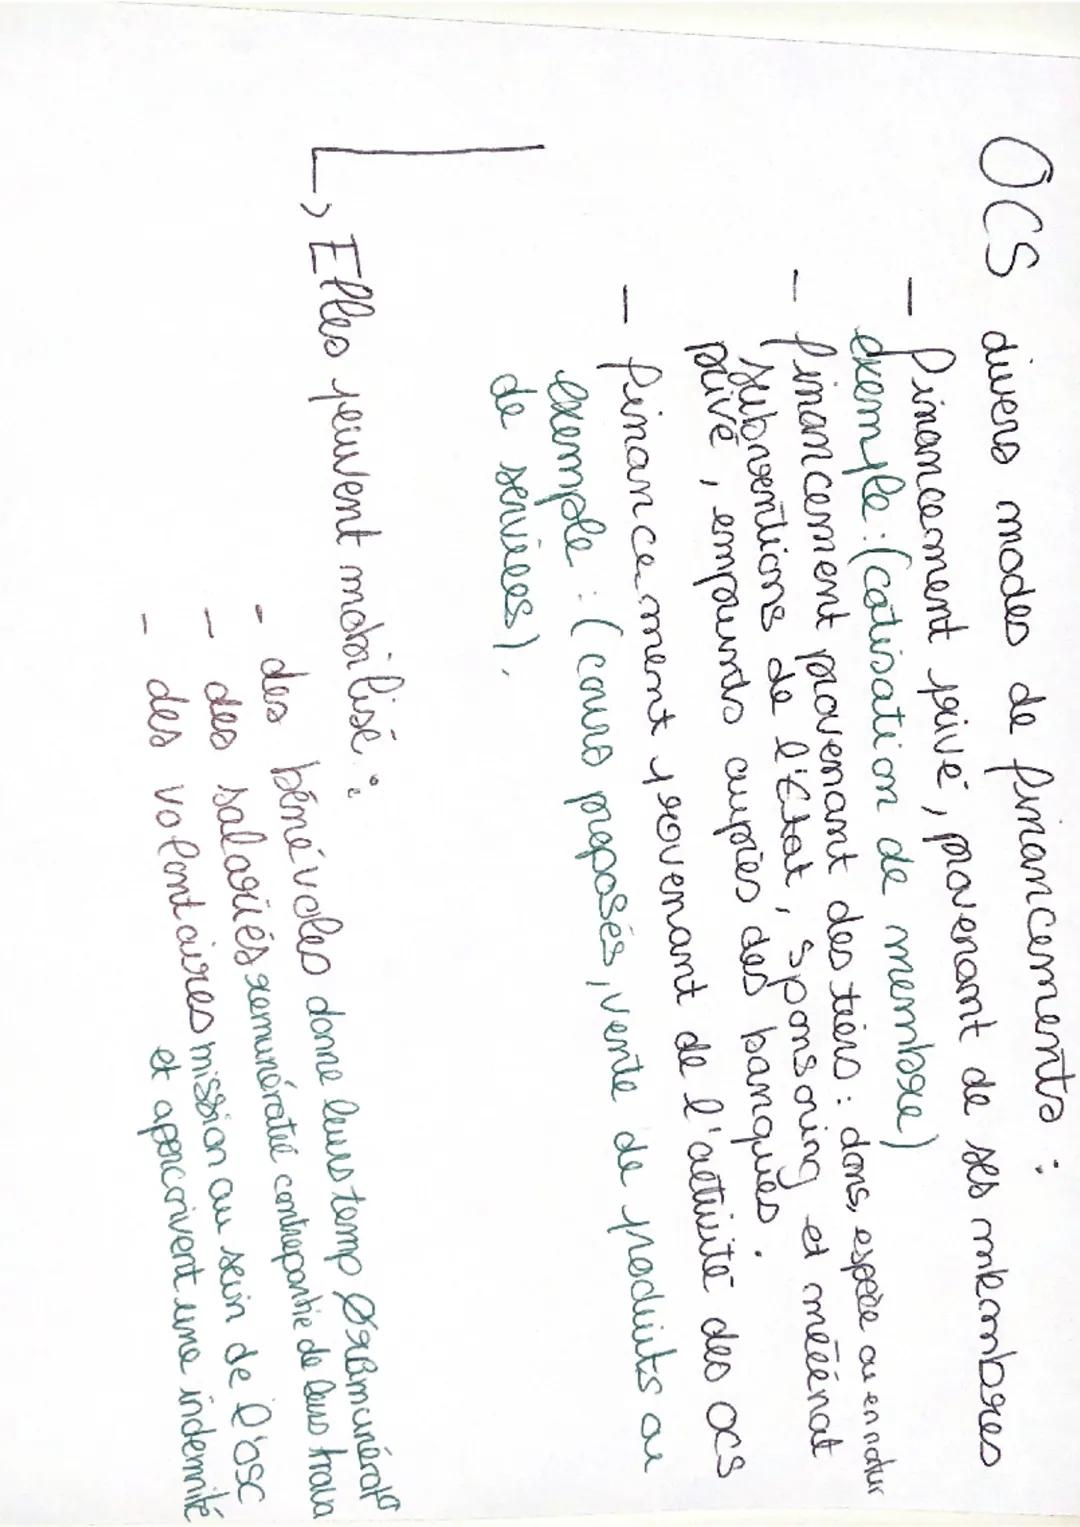 OCS divers modes de financements :
- Financement privé, provenant de ses membres
exemple : (catisation de membre)
- financement provenant des tiers : dons, espèce ou en natur
subventions de l'Etat, sponsoring et mécénat
privé, emprunts auprès des banques.
- financement provenant de l'activité des OCS
exemple : (cours proposés, vente de produits ou
de services).
↳ Elles peuvent mobilisé :
- des bénévoles donne leurs temp Ø rémunérat°
- des salariés remunératié contrepartie de leurs trava
- des volontaires mission au sein de l'osc
et apercoivent une indemnité